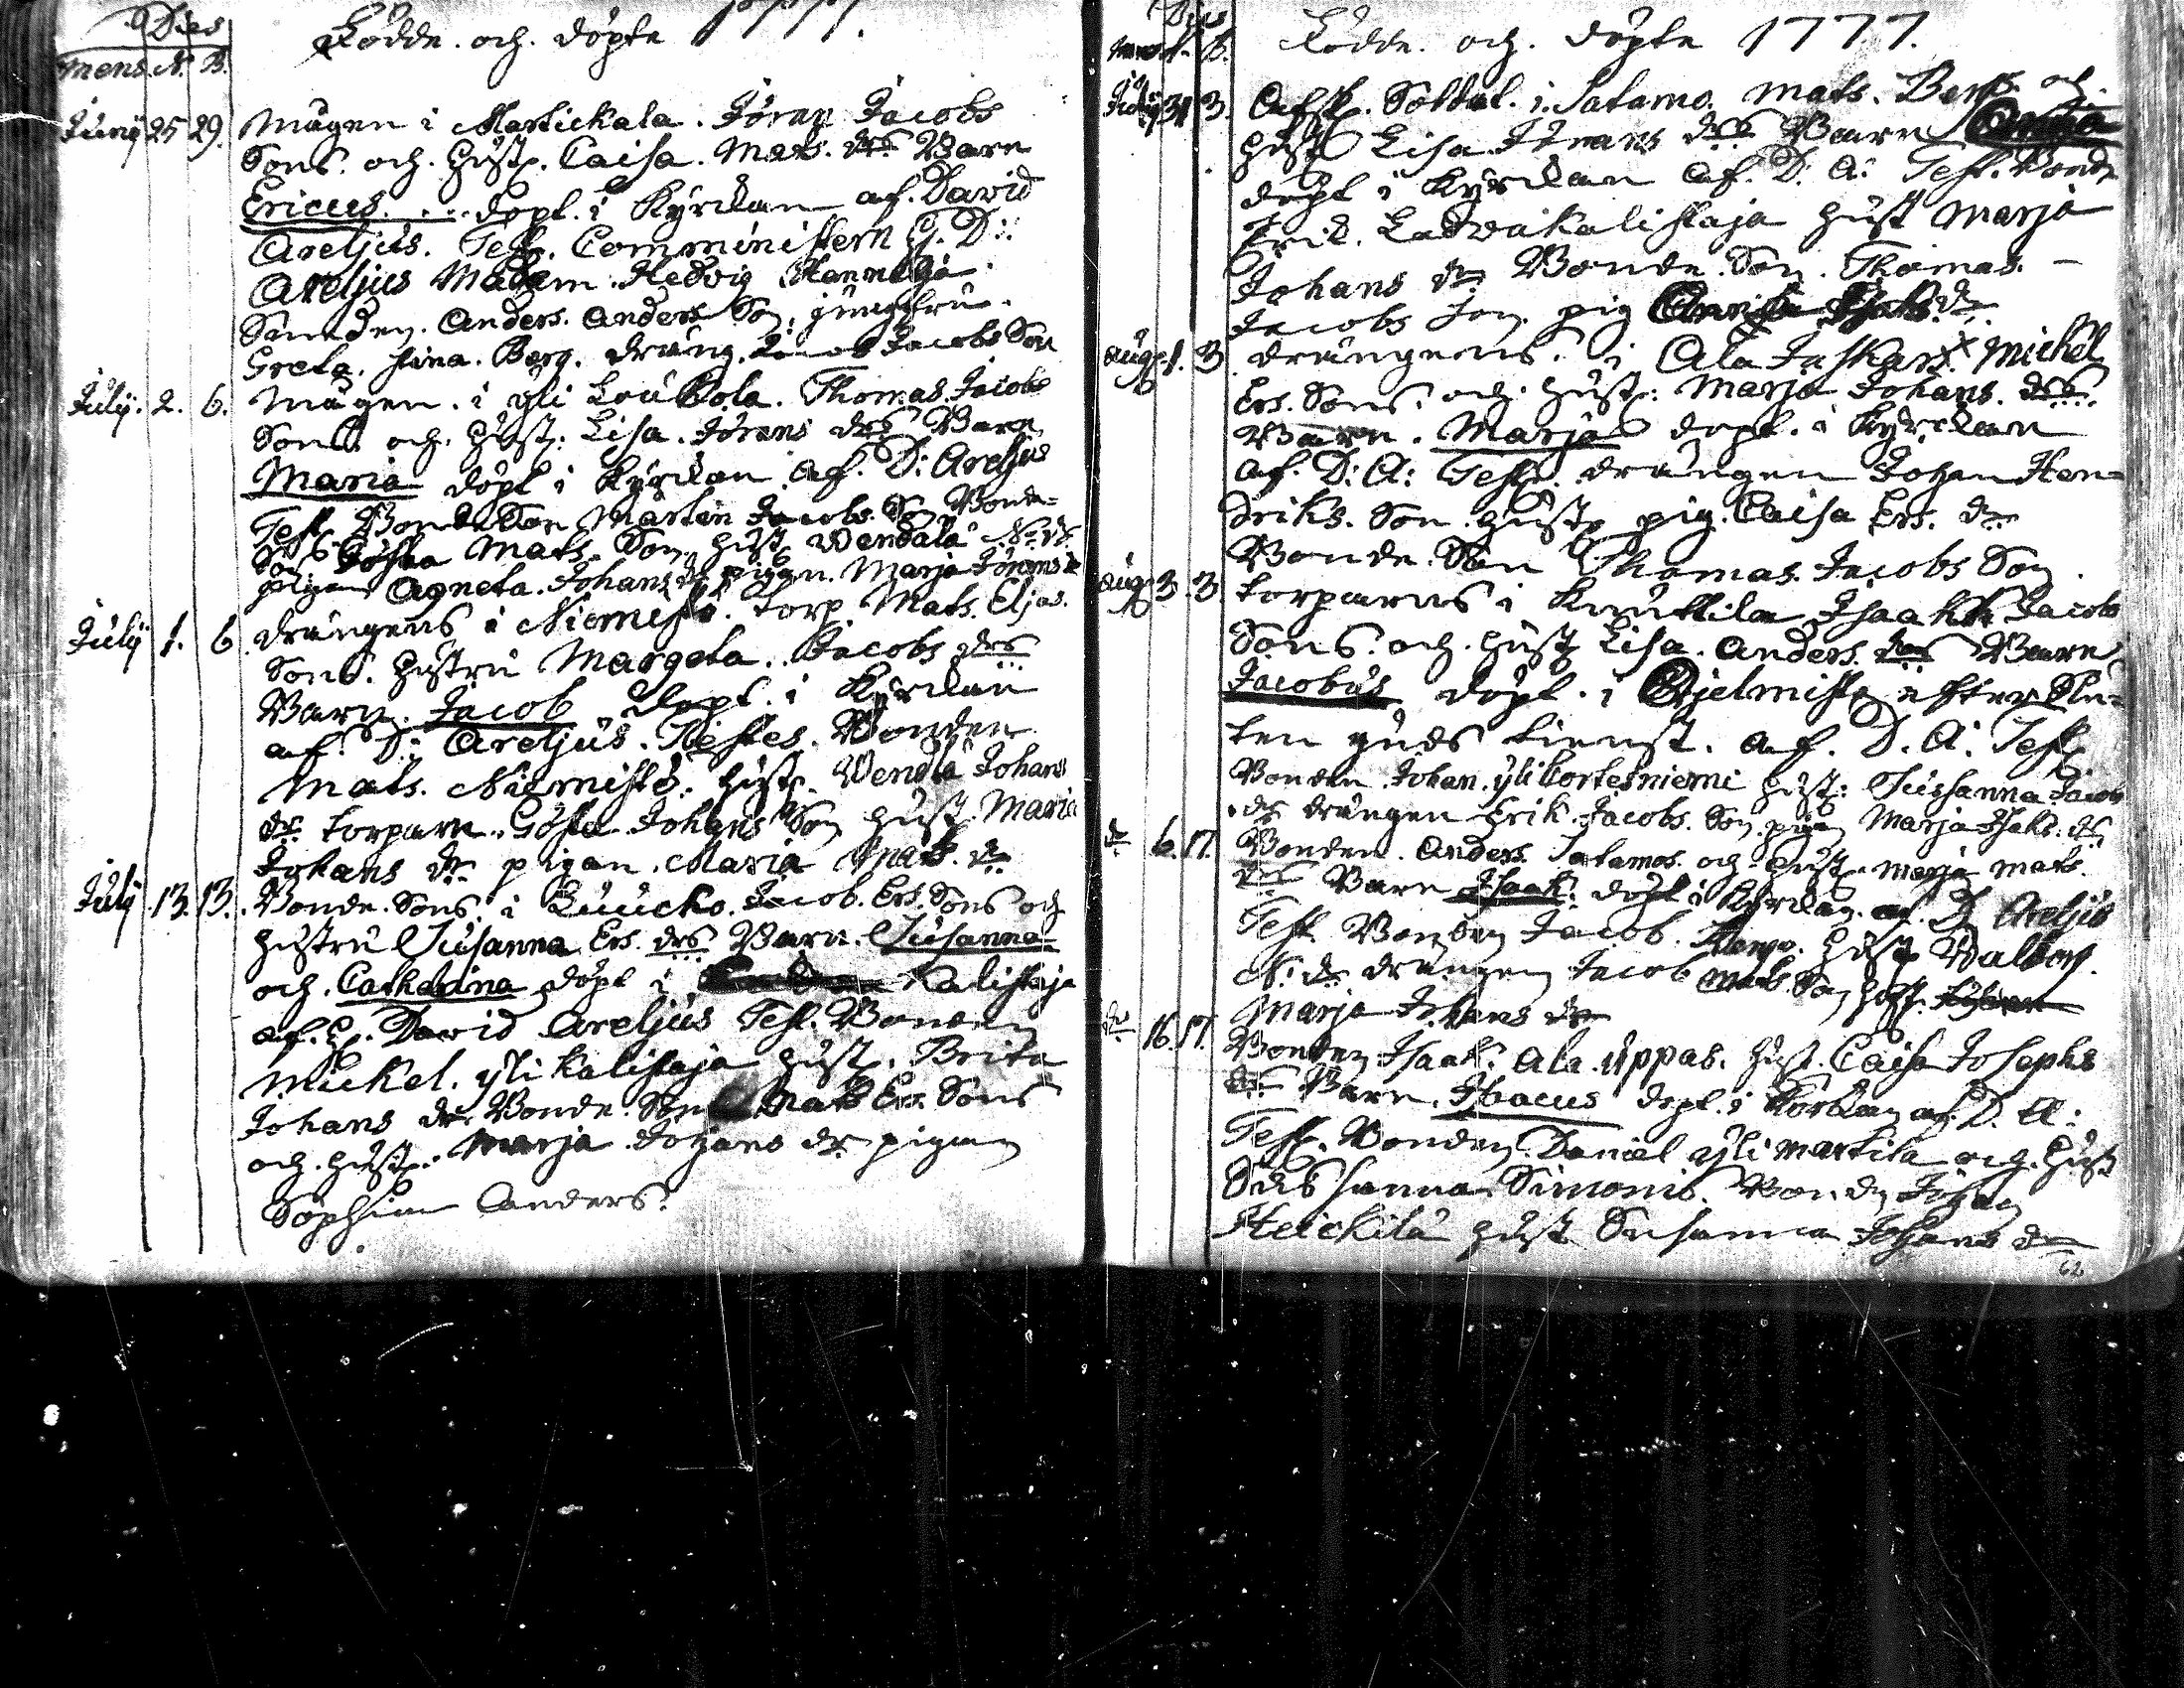 Dies
Födde. och. döpte 1777.
mens. N. B.
Juny 25 29. Mågen i Martickala. Jöran Jacobs
Sons. och. Hust. Caisa. Mats. drs Barn
Ericus. döpt. i Kyrckan af. David
Areljus. Test. Comministern H. D:
Areljus Madam. Hedvig
Anders. Anders Son. jungfru
Greta. Stina. Berg. dräng. Jacob Jacobs Son
July. 2. 6. Mågen. i yli Loukola. Thomas. Jacobs
Sons. och. Hust: Lisa. Jörans drs Barn
Maria döpt i Kyrckan af. D: Areljus
Test. Bonde Son Martin Jacobs. Son Bonde-
Son Gösta Mats. Son. Hust Wendala N. dr.
pigan Agneta. Johans dr pigan. Marja Jörans dr
July 1. 6 drängens i Niemistö. torp. Mats. Eljas.
Sons. Hustru Margeta. Jacobs drs
Barn. Jacob döpt. i Kyrckan
af. D: Areljus. Testes. Bonden
Mats. Niemistö. Hust. Wendla Johans
dr torparn. Gösta. Johans Son Hust. Maria
Johans dr pigan. Maria Mats. dr
July 13. 13. Bonde. Sons. i Luucko. Jacob. Ers. Sons och
Hustru Susanna Ers. drs Barn. Susanna
och. Catharina döpt i Kalistaja
af. H. David Areljus Test. Bonden
Mickel. yli Kalistaja Hust. Brita
Johans dr. Bonde. Son Mats Ers. Sons
och. Hust. Marja Johans dr pigan
Sophia Anders.
Dies
Födde. och. döpte 1777.
mens. N. B.
July 31 3. Afsk. Soldat. i. Satamo. Mats. Bengs. och.
Hust Lisa Jörans drs Barn
döpt i Kyrckan af. D: A: Test. Bonde
Erik. Ladvakalistaja Hust Marja
Johans dr Bonde. Son. Thomas. -
Jacobs Son pig dr
Aug. 1. 3 drängens. i Ala Juskars. Michel
Ers. Sons. och Hust: Marja Johans. drs
Barn. Marja döpt. i Kyrckan
af. D: A: Test. drängen Johan Hen-
driks. Son Hust pig. Caisa Ers. dr
Bonde. Son Thomas. Jacobs Son
Aug 3. 3 torparns i Knuttila Isaak Jacobs
Sons. och. Hust Lisa. Anders. drs Barn
Jacobus döpt. i efter Slu-
ten guds tienst. af. D. A. Test
Bonden Johan. yliKortesniemi Hust: Sussanna Jacobs
dr drängen Erik. Jacobs. Son. pigan Marja Isaks. dr
dr 6. 17. Bonden. Anders. Satamos. och Hust. Marja Mats.
drs Barn Isaak. döpt i Kyrckan. af. D Areljus
Test Bonden Jacob. Hust Walborg.
N. dr drängen Jacob Mats. Son Hust.
Marja Johans dr
dr 16. 17. Bonden Isaak. Ala. Uppas. Hust. Caisa Josephs
drs Barn. Isacus döpt. i Kyrckan af. D. A:
Test. Bonden Daniel yli Martila och. Hust
Susanna Simonis. Bonden Johan
Heickilä Hust Susanna Johans dr
62